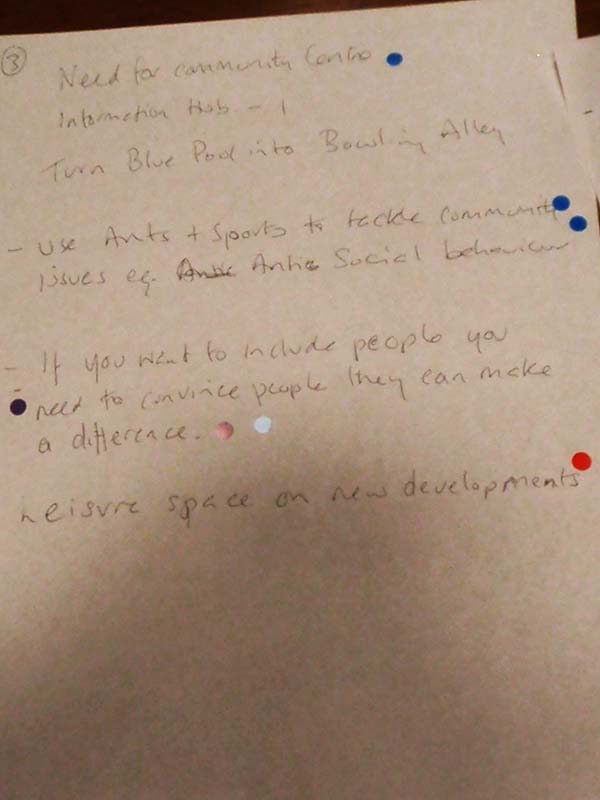 ③
Need for community Centre
Information Hub - 1
Turn Blue Pool into Bowling Alley
- Use Arts + Sports to tackle community
issues eg. Antic Social behaviour
- If you want to include people you
need to convince people they can make
a difference.
Leisure space on new developments